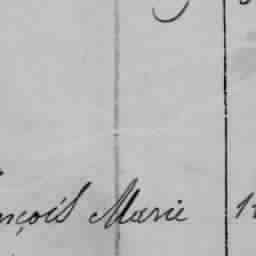 nçois Marie